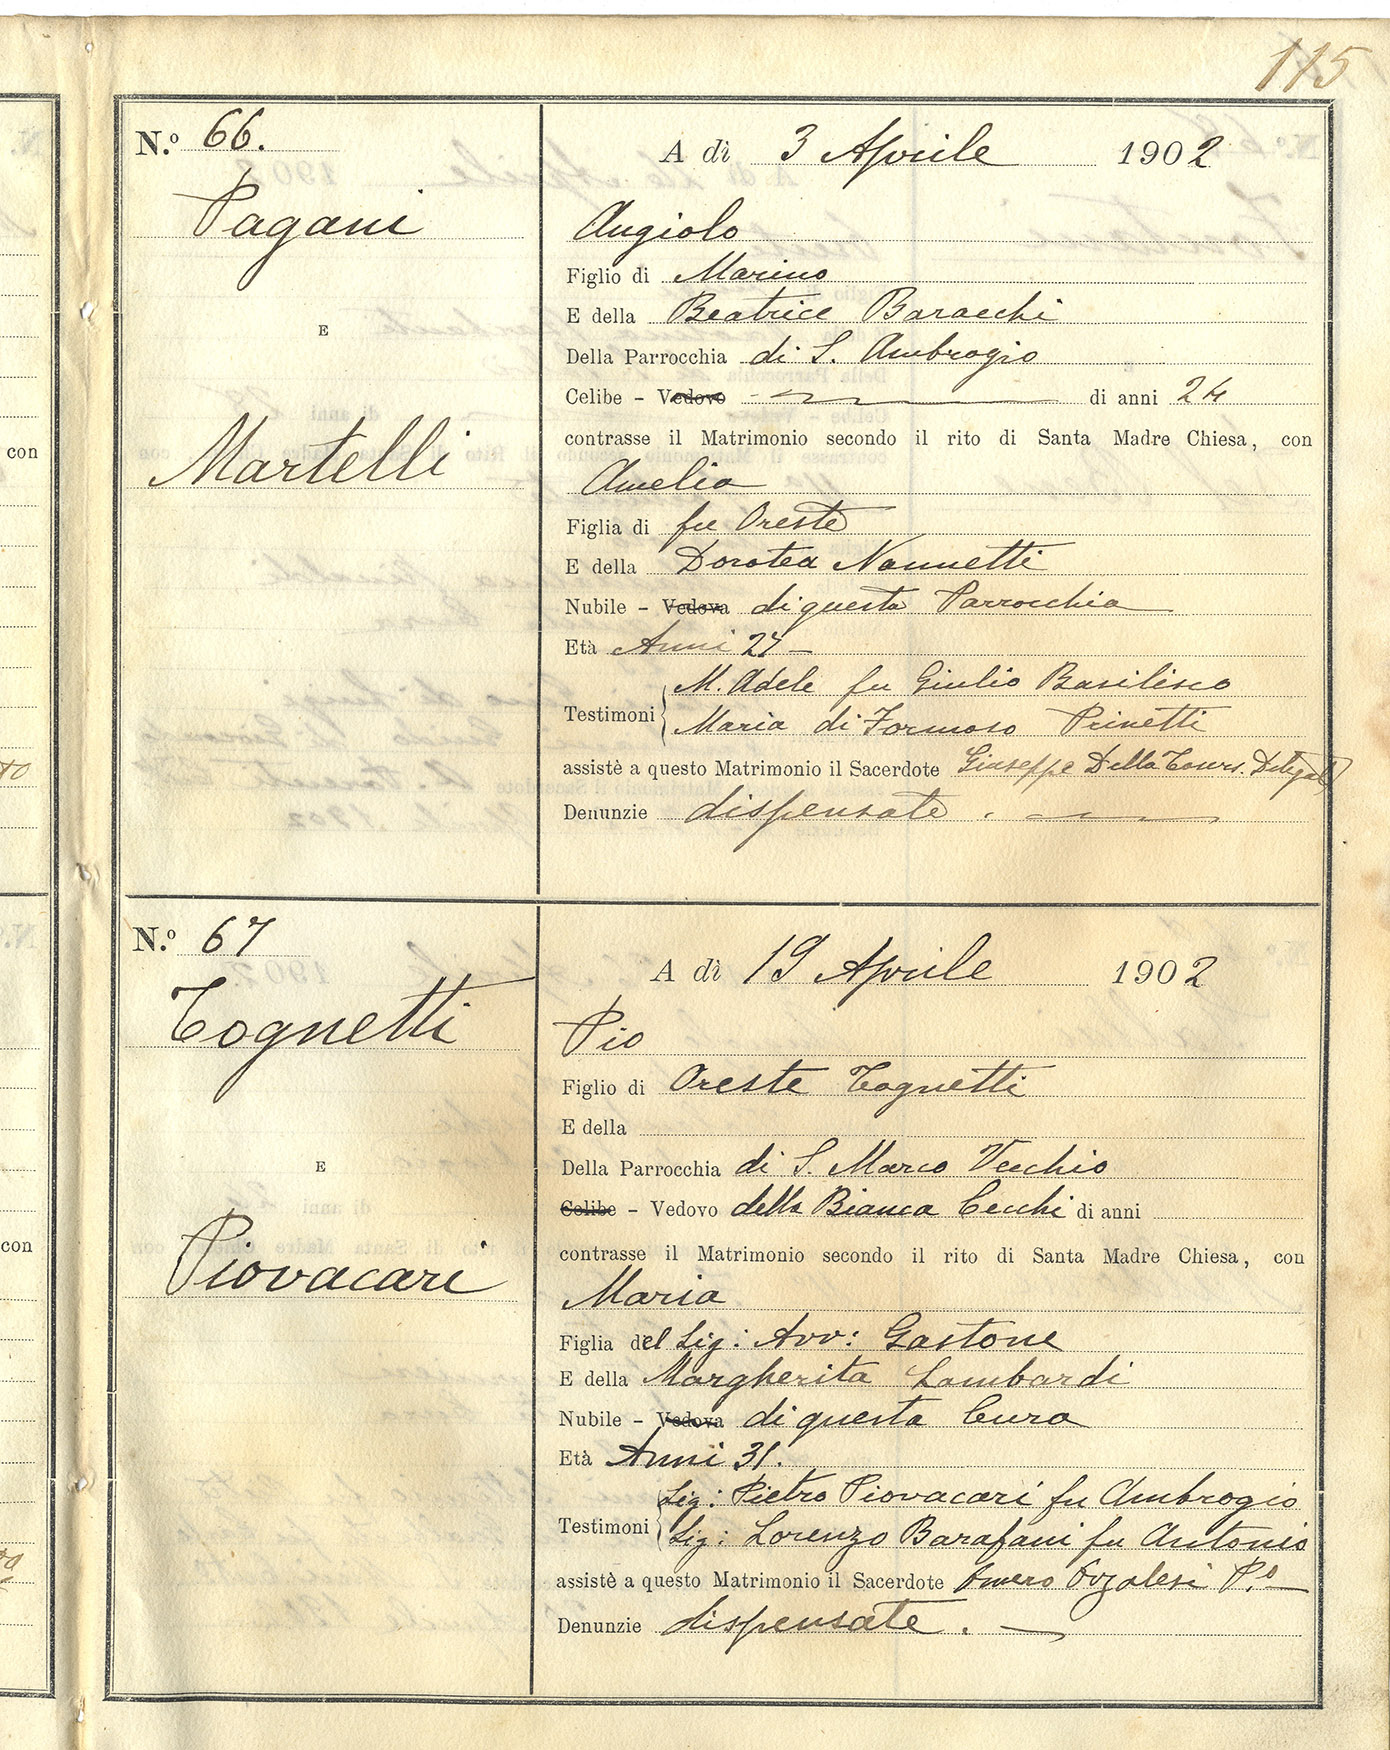 115
N.º 66.
Pagani
E
Martelli
A dì 3 Aprile 1902
Angiolo
Figlio di Marino
E della Beatrice Baracchi
Della Parrocchia di S. Ambrogio
Celibe – Vedovo di anni 24
contrasse il Matrimonio secondo il rito di Santa Madre Chiesa, con
Amelia
Figlia di fu Oreste
E della Dorotea Nannetti
Nubile – Vedova di questa Parrocchia
Età Anni 27 –
M. Adele fu Giulio Basilisco
Testimoni
Maria di Formoso Prinetti
assistè a questo Matrimonio il Sacerdote Giuseppe Della
Denunzie dispensate .
N.º 67
Tognetti
E
Piovacari
A dì 19 Aprile 1902
Pio
Figlio di Oreste Tognetti
E della
Della Parrocchia di S. Marco Vecchio
Celibe – Vedovo della Bianca Cecchi di anni
contrasse il Matrimonio secondo il rito di Santa Madre Chiesa, con
Maria
Figlia del Sig: Avv: Gastone
E della Margherita Lombardi
Nubile – Vedova di questa Cura
Età Anni 31.
Sig: Pietro Piovacari fu Ambrogio
Testimoni
Sig: Lorenzo Barafani fu Antonio
assistè a questo Matrimonio il Sacerdote P.º
Denunzie dispensate .
con
con